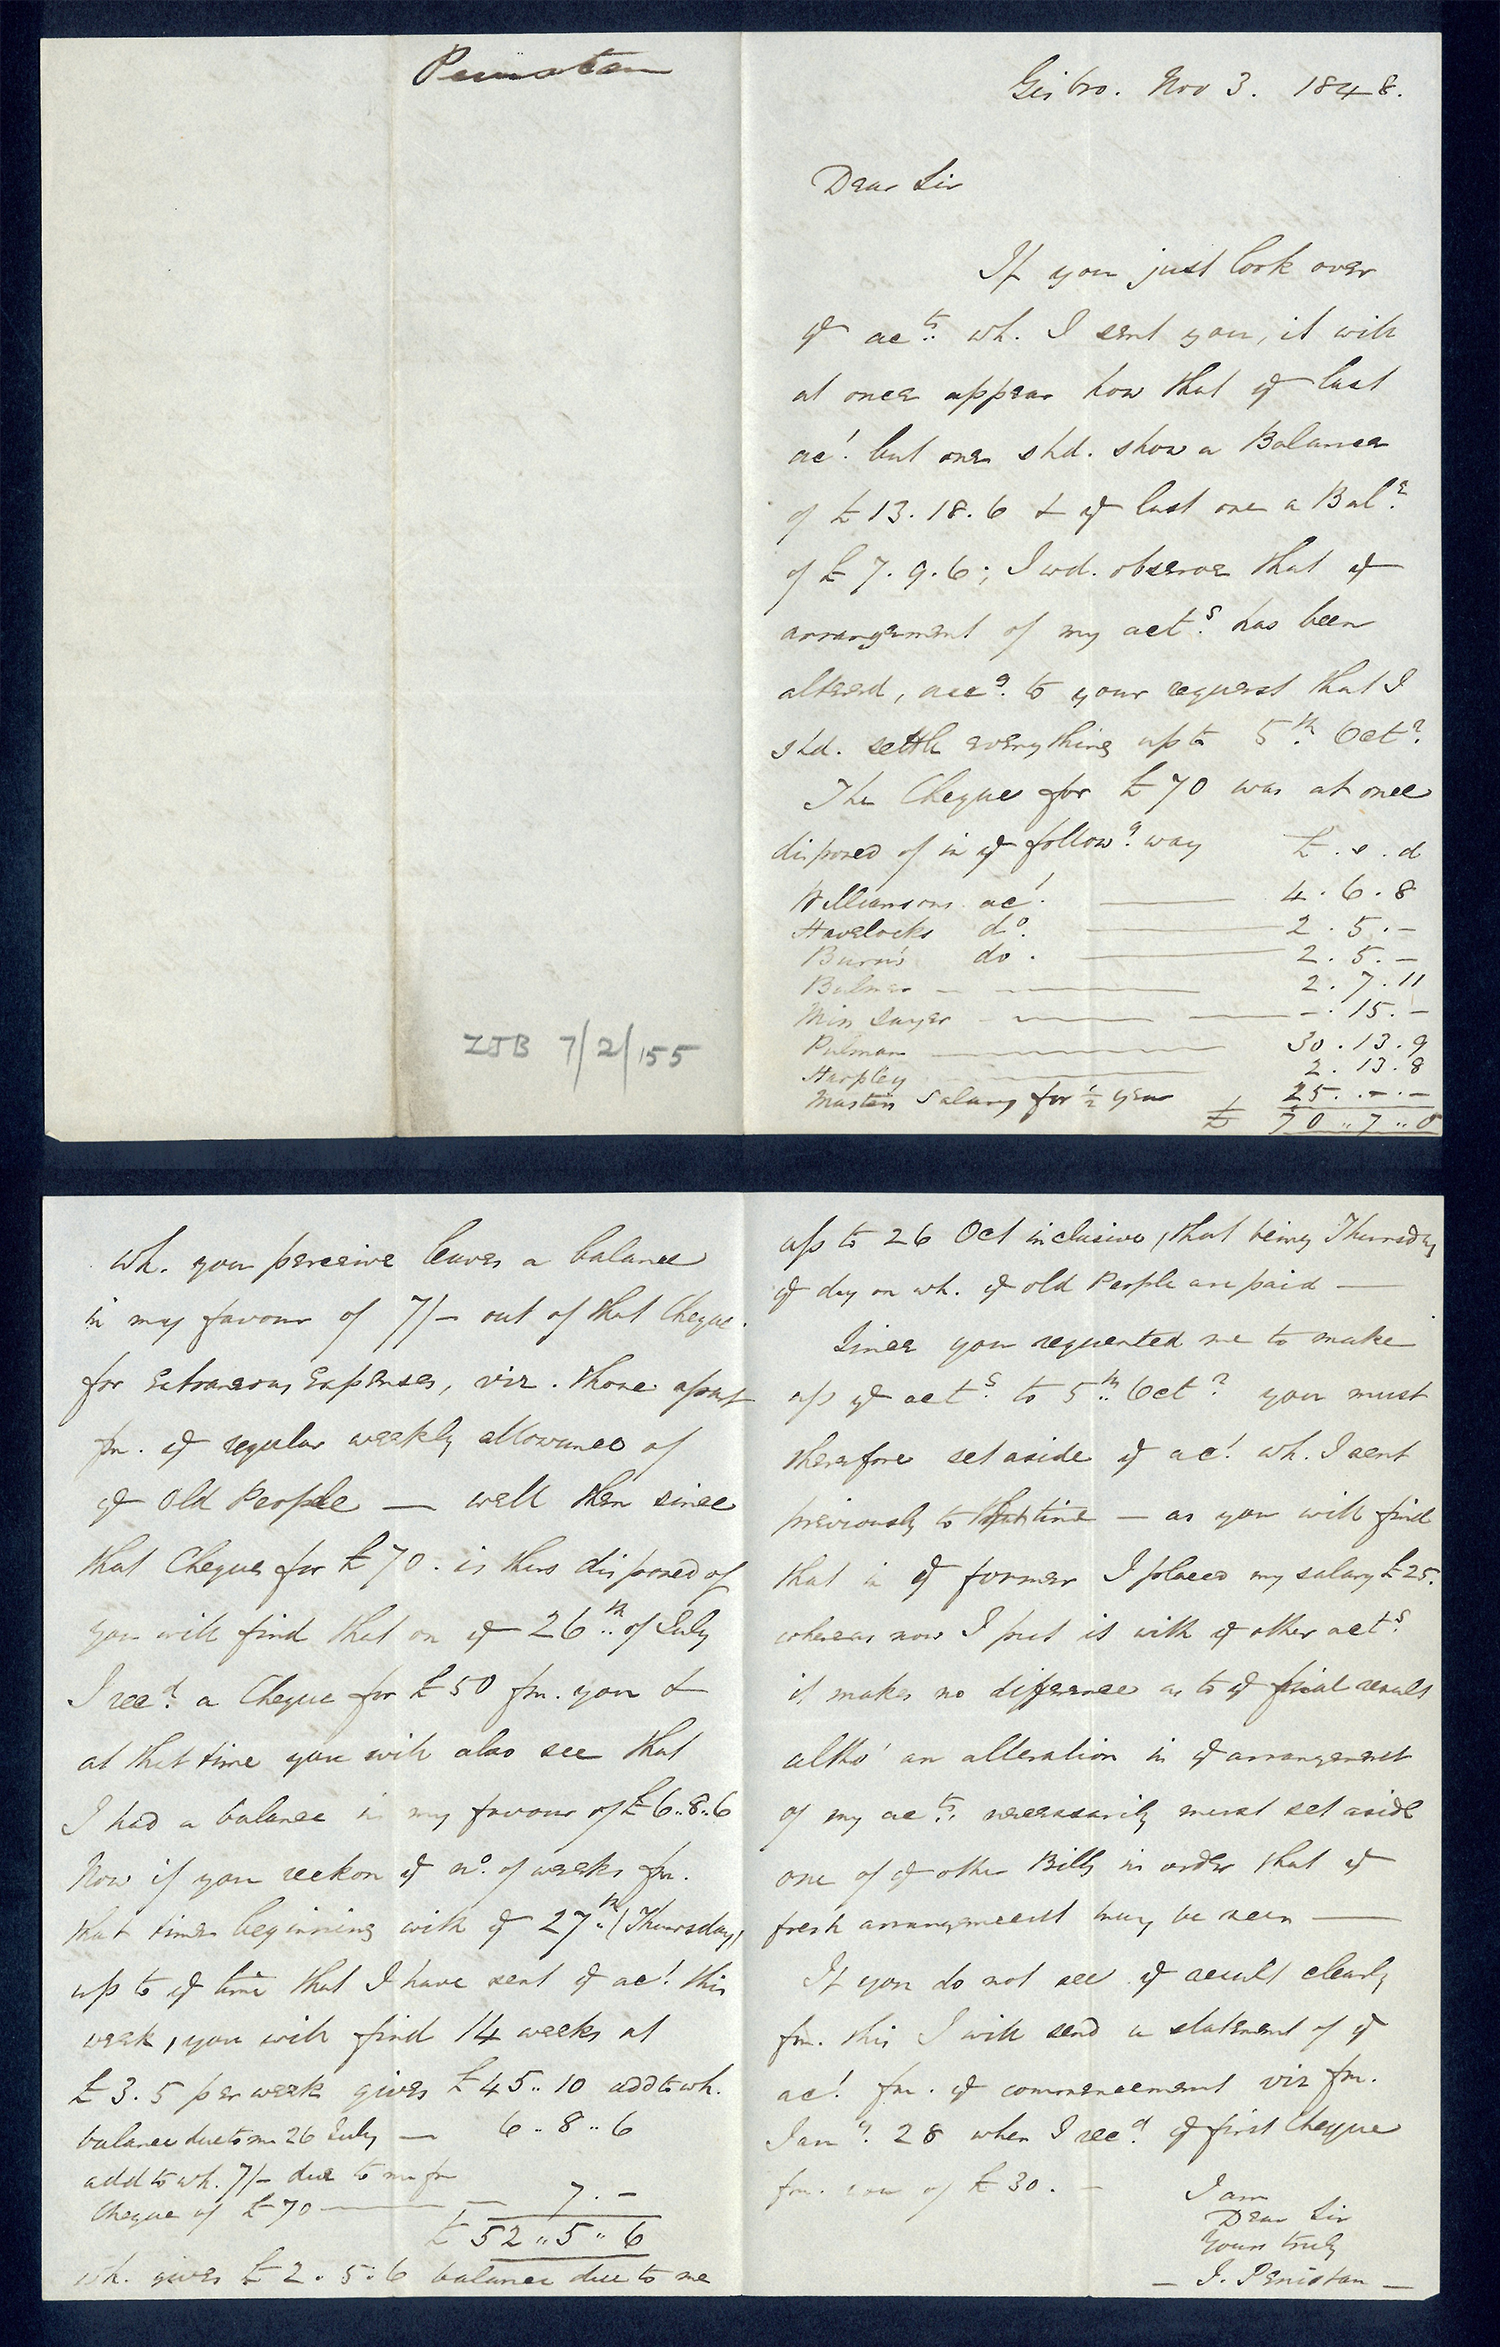 Penistan
ZJB 7/2/155
Gisbro. Nov 3. 1848.
Dear Sir
If you just look over
ye acts. wh. I sent you, it will
at once appear how that ye last
act. but one shd. show a Balance
of £13.18.6 & ye last one a Bale.
of £7.9.6; I wd. observe that ye
arrangement of my acts. has been
altered, accg. to your request that I
shd. settle everything up to 5th. Octr.
The Cheque for £70 was at once
disposed of in ye followg. way £ . s . d
Williamsons act. 4 . 6 . 8
Havelocks do. 2 . 5 . –
Burn's do. 2 . 5 . –
Bulmer 2 . 7 . 11
Miss Sayer – . 15 . –
Pulman 30 . 13 . 9
Harpley 2 . 13 . 8
Masters Salary for ½ year 25 . – . –
£ 70 .. 7 .. 0
wh. you perceive leaves a balance
in my favour of 7/– out of that Cheque.
for extraneous expenses, viz. those apart
fm. ye regular weekly allowance of
ye Old People — well then since
that Cheque for £70. is thus disposed of
you will find that on ye 26th. of July
I recd. a Cheque for £50 fm. you &
at that time you will also see that
I had a balance in my favour of £6..8..6
Now if you reckon ye no. of weeks fm.
that time beginning with ye 27th. (Thursday)
up to ye time that I have sent ye act. this
week, you will find 14 weeks at
£3.5 per week gives £45..10 add to wh.
balance due to me 26 July — 6..8..6
add to wh. 7/– due to me fm
Cheque of £70 — 7.–
£52..5..6
wh. gives £2.5.6 balance due to me
up to 26 Oct inclusive, that being Thursday
ye day on wh. ye old People are paid —
Since you requested me to make
up ye acts. to 5th. Octr. you must
therefore set aside ye act. wh. I sent
previously to that time — as you will find
that in ye former I placed my salary £25.
whereas now I put it with ye other acts.
it makes no difference as to ye final result
altho' an alteration in ye arrangement
of my acts. necessarily must set aside
one of ye other Bills in order that ye
fresh arrangement may be seen —
If you do not see ye result clearly
fm. this I will send a statement of ye
act. fm. ye commencement viz fm.
Jany. 28 when I recd. ye first Cheque
fm. you of £30. –
I am
Dear Sir
Yours truly
— J. Penistan —